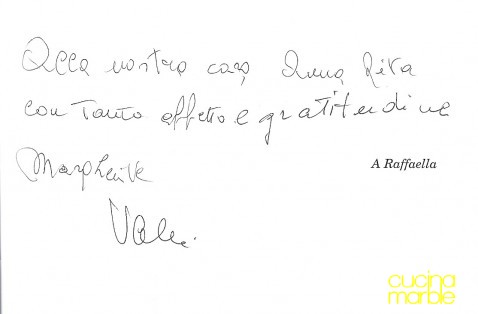 Alla nostra cara Anna Rita
con Tanto affetto e gratitudine
Margherita
A Raffaella
cucina
marble